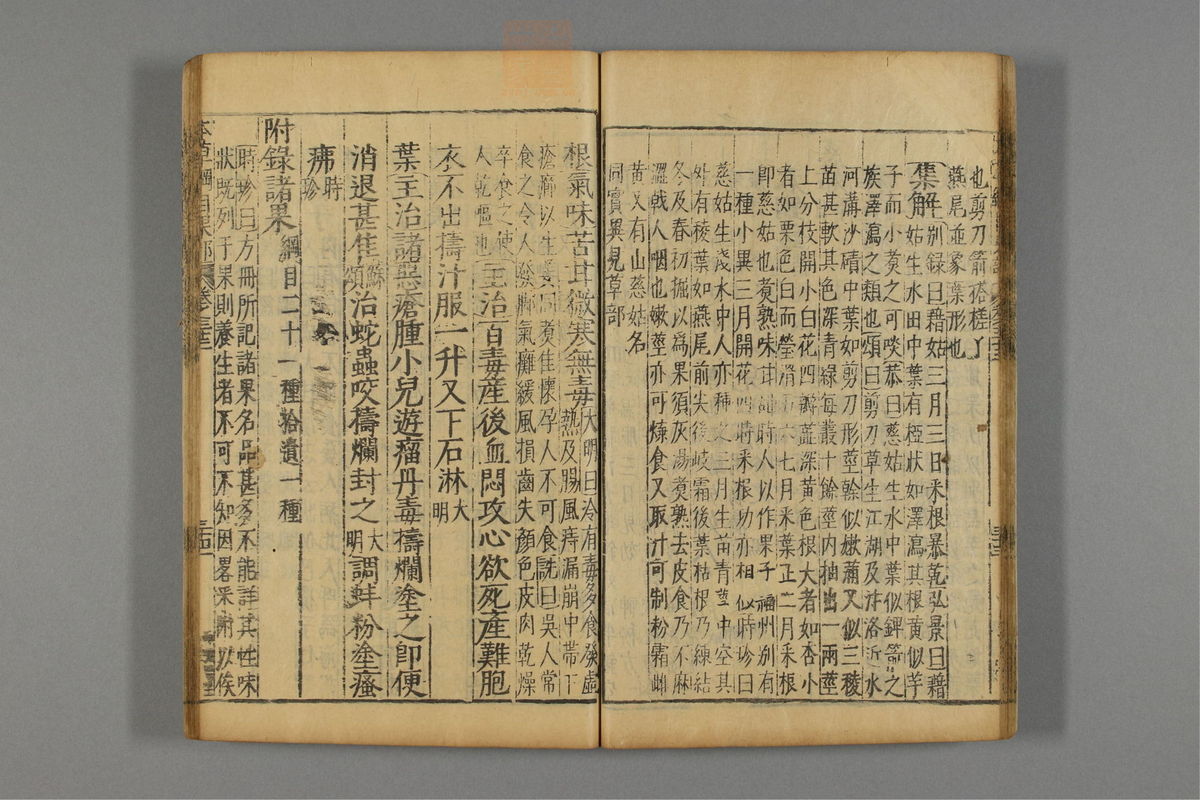 也剪刀箭搭槎丫
燕尾並象葉形也
集解别録曰藉姑三月三日采根暴乾弘景曰藉
姑生水田中葉有椏狀如澤瀉其根黄似芋
子而小煑之可啖恭曰慈姑生水中葉似錍箭之
族澤瀉之類也頌曰剪刀草生江湖及汴洛近水
河溝沙磧中葉如剪刀形莖幹似嫩蒲又似三稜
苗甚軟其色深青緑每叢十餘莖内抽出一兩莖
上分枝開小白花四瓣蕊深黄色根大者如杏小
者如栗色白而瑩滑五六七月采葉正二月采根
即慈姑也煑熟味甘甜時人以作果子福州别有
一種小異三月開花四時采根功亦相似時珍曰
慈姑生淺水中人亦種之三月生苗青莖中空其
外有稜葉如燕尾前尖後岐霜後葉枯根乃練結
冬及春初掘以爲果須灰湯煑熟去皮食乃不麻
澀戟人咽也嫩莖亦可煠食又取汁可制粉霜雌
黄又有山慈姑名
同實異見草部
根氣味苦甘微寒無毒大明曰冷有毒多食發虚
熱及腸風痔漏崩中帶下
瘡癤以生薑同煑佳懷孕人不可食詵曰吳人常
食之令人發脚氣癱緩風損齒失顔色皮肉乾燥
卒食之使
人乾嘔也主治百毒産後血悶攻心欲死産難胞
衣不出擣汁服一升又下石淋大
明
葉主治諸惡瘡腫小兒遊瘤丹毒擣爛塗之即便
消退甚佳蘇
頌治蛇蟲咬擣爛封之大
明調蚌粉塗瘙
疿時
珍
附録諸果綱目二十一種拾遺一種
時珍曰方冊所記諸果名品甚多不能詳其性味
狀既列于果則養生者不可不知因畧采附以俟